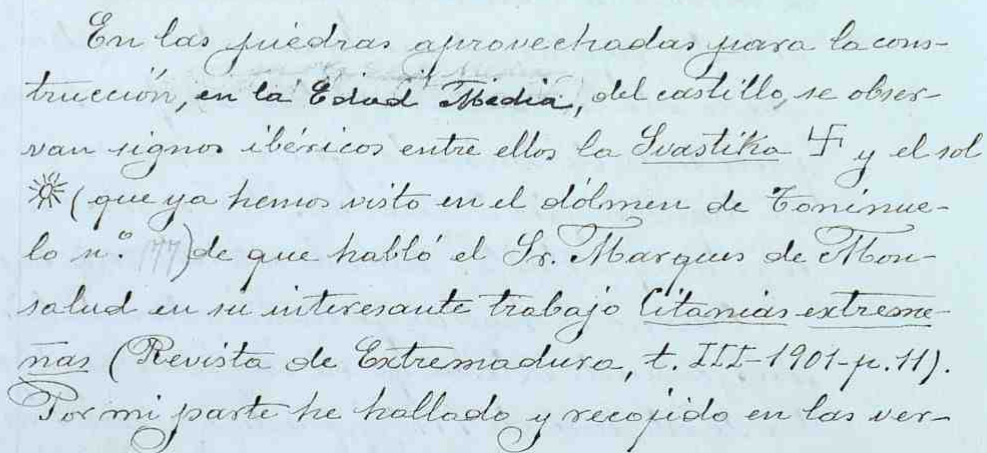 En las piedras aprovechadas para la cons-
trucción, en la Edad Media, del castillo, se obser-
van signos ibéricos entre ellos la Svastika 卐 y el sol
☼ (que ya hemos visto en el dólmen de Toninue-
lo n.º 77) de que habló el Sr. Marques de Mon-
salud en su interesante trabajo Citanias extreme-
ñas (Revista de Extremadura, t. III-1901-p. 11).
Por mi parte he hallado y recojido en las ver-